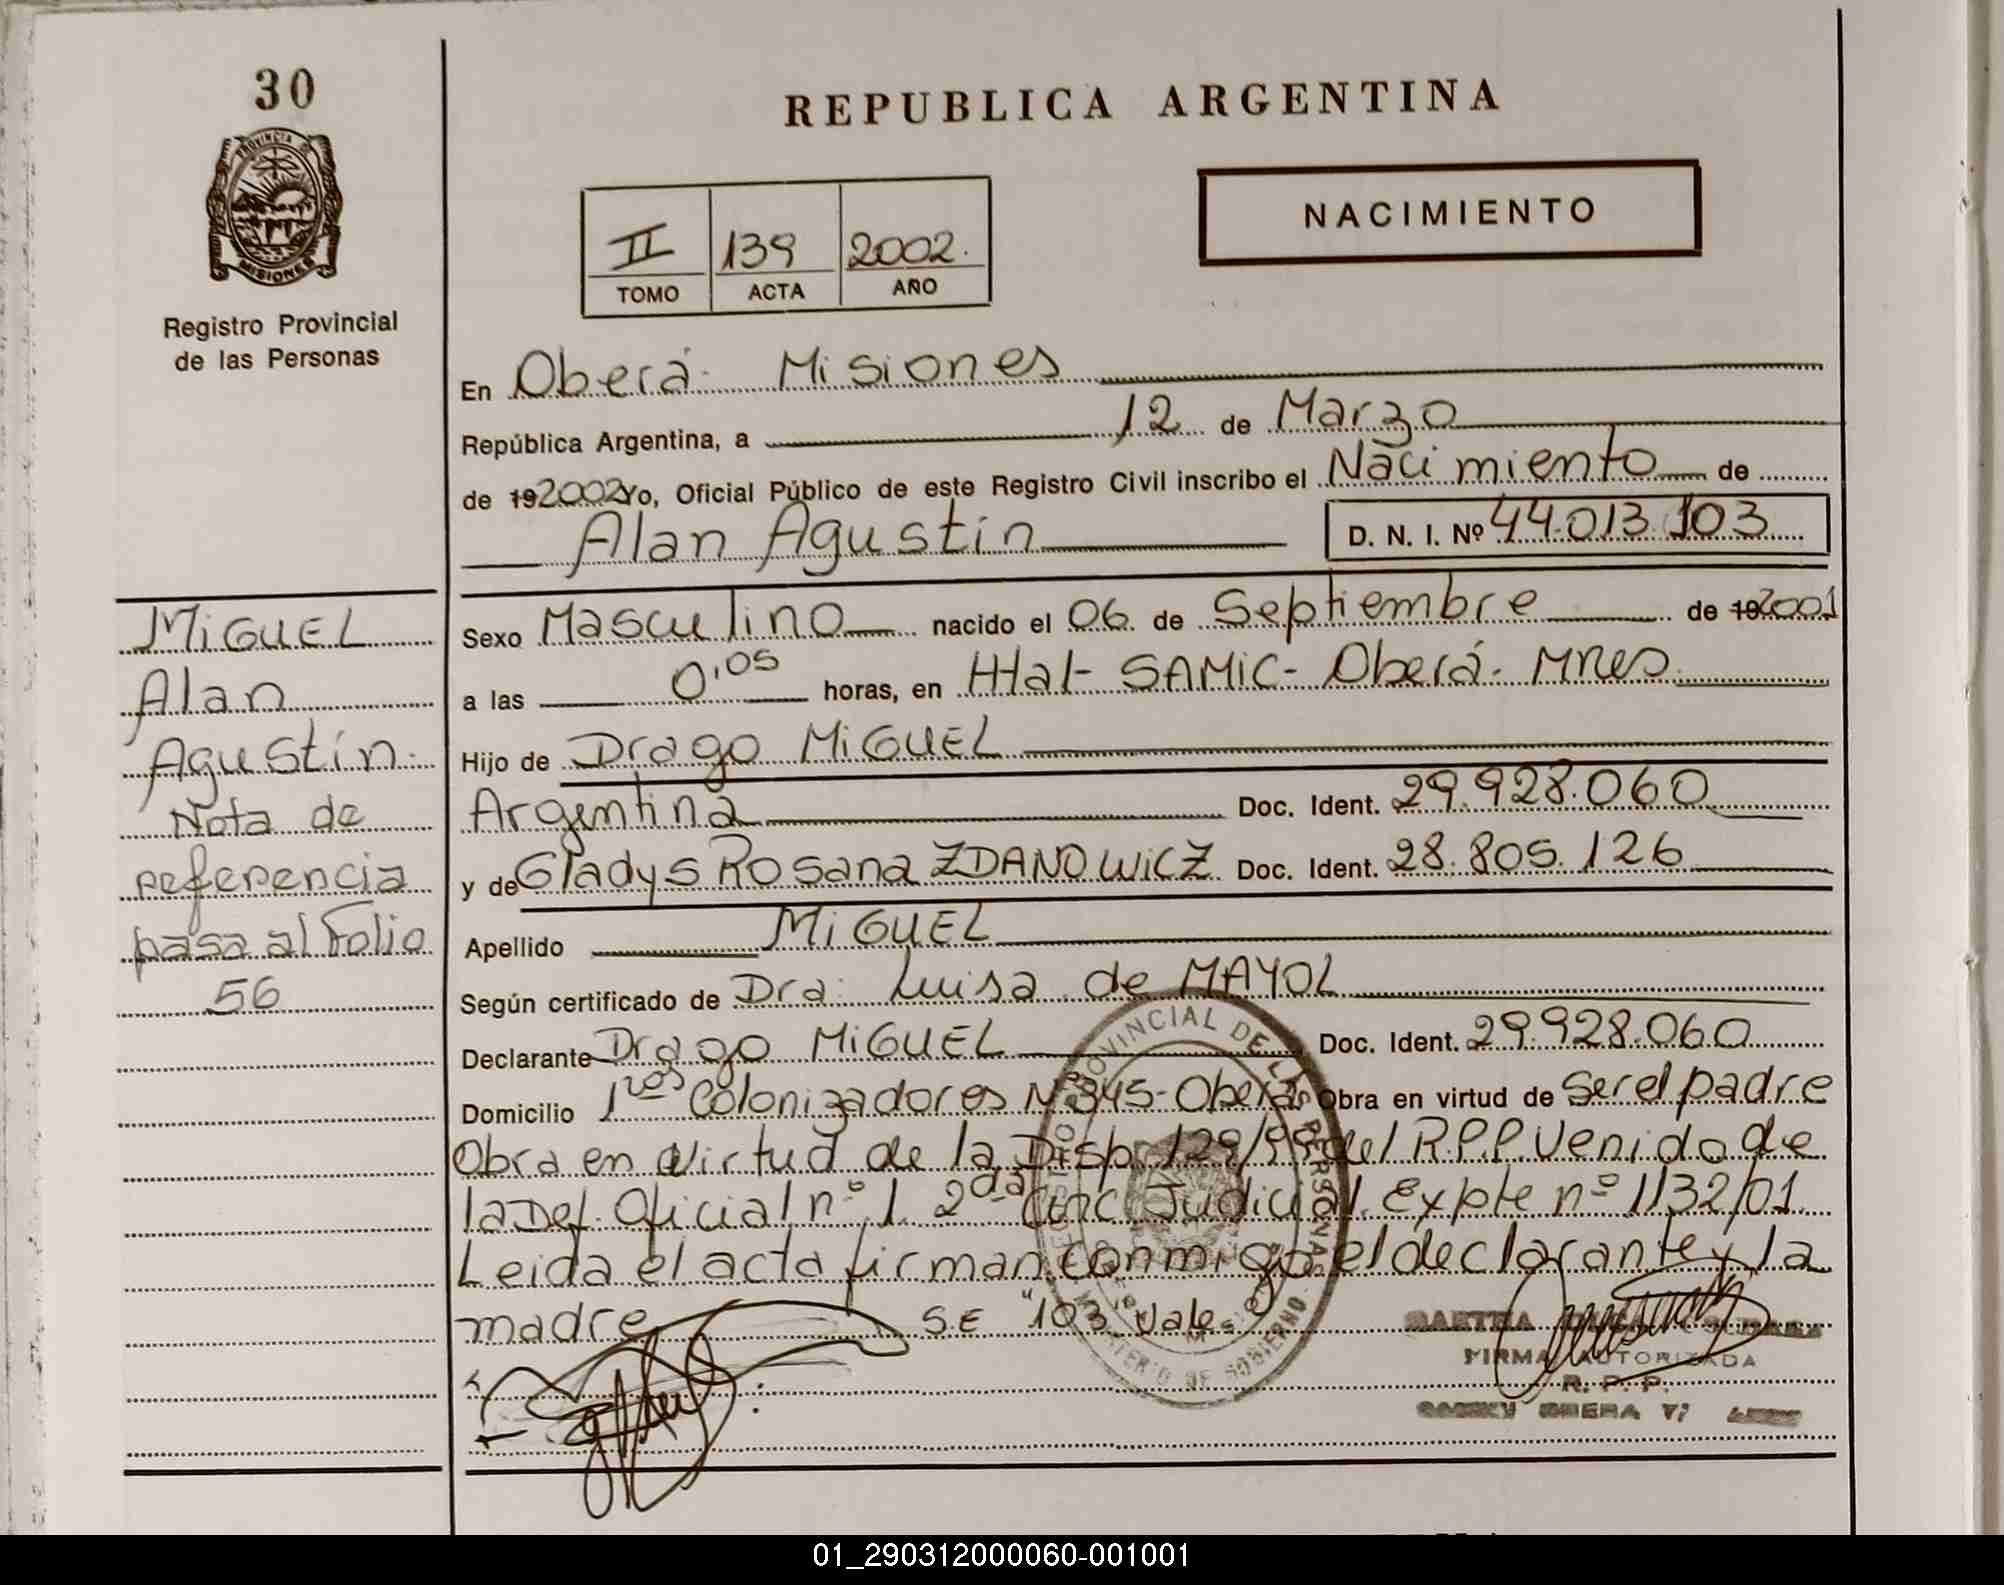 30
PROVINCIA DE
MISIONES
Registro Provincial
de las Personas
REPUBLICA ARGENTINA
II 139 2002.
TOMO ACTA AÑO
NACIMIENTO
En Oberá- Misiones
República Argentina, a 12 de Marzo
de 19 2002 Yo, Oficial Público de este Registro Civil inscribo el Nacimiento de
Alan Agustín D. N. I. Nº 44.013.103
Sexo Masculino nacido el 06 de Septiembre de 19 2001
a las 0'05 horas, en Htal- SAMIC- Oberá- Mnes
Hijo de Drago MIGUEL
Argentina Doc. Ident. 29.928.060
y de Gladys Rosana ZDANOWICZ Doc. Ident. 28.805.126
Apellido MIGUEL
Según certificado de Dra: Luisa de MAYOL
Declarante Drago MIGUEL Doc. Ident. 29.928.060
Domicilio 1ros Colonizadores Nº345-Oberá Obra en virtud de Ser el padre
Obra en virtud de la Disp. 129/99 del R.P.P. Venido de
la Def. Oficial nº 1. 2da Circ. Judicial. Expte nº 1132/01.
Leida el acta firman conmigo el declarante y la
madre S.E "103" Vale.
MIGUEL
Alan
Agustín.
Nota de
referencia
pasa al Folio
56
PROVINCIAL DE LAS PERSONAS
MINISTERIO DE GOBIERNO
FIRMA AUTORIZADA
R. P. P.
01_290312000060-001001